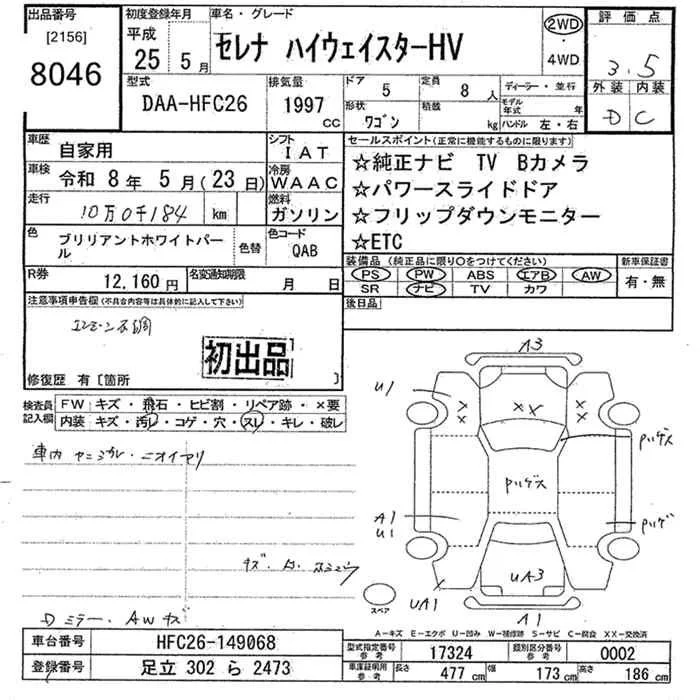 出品番号 初度登録年月 車名・グレード 評価点
[2156] 平成 2WD
8046 25年 5月 セレナ ハイウェイスターHV ・ 3.5
4WD
型式 排気量 ドア 5 定員 8人 ディーラー・並行 外装 内装
DAA-HFC26 1997 cc 形状 ワゴン 積載 kg モデル年式 年 D C
ハンドル 左・右
車歴 自家用 シフト IAT セールスポイント(正常に機能するものに限ります)
車検 令和 8年 5月(23日) 冷房 WAAC ☆純正ナビ TV Bカメラ
走行 10万0千184 km 燃料 ガソリン ☆パワースライドドア
☆フリップダウンモニター
色 ブリリアントホワイトパール 色替 色コード QAB ☆ETC
装備品(純正品に限り○をつけてください) 新車保証書
R券 12,160円 名変通知期限 月 日 PS PW ABS エアB AW 有・無
SR ナビ TV カワ
注意事項申告欄(不具合内容等は具体的に記入して下さい) 後日品
エンジン不調
初出品
修復歴 有〔箇所 〕
検査員記入欄 FW キズ・飛石・ヒビ割・リペア跡・×要
内装 キズ・汚レ・コゲ・穴・スレ・キレ・破レ
車内 ヤニ
ニオイアリ
Dミラー・AWキズ
A3
U1
××
××
××
Pハゲ大
Pハゲ大
A1
U1
Pハゲ
UA3
UA1
A1
スペア
A-キズ E-エクボ U-凹み W-補修跡 S-サビ C-腐食 XX-交換済
車台番号 HFC26-149068 型式指定番号 参考 17324 類別区分番号 参考 0002
登録番号 足立 302 ら 2473 車庫証明用 参考 長さ 477 cm 幅 173 cm 高さ 186 cm